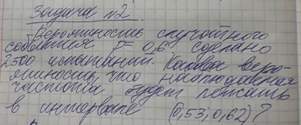 Задача №2
Вероятность случайного
события P = 0,6 сделано
2500 испытаний. Какова веро-
ятность, что наблюдаемая
частота будет лежать
в интервале (0,53; 0,62)?